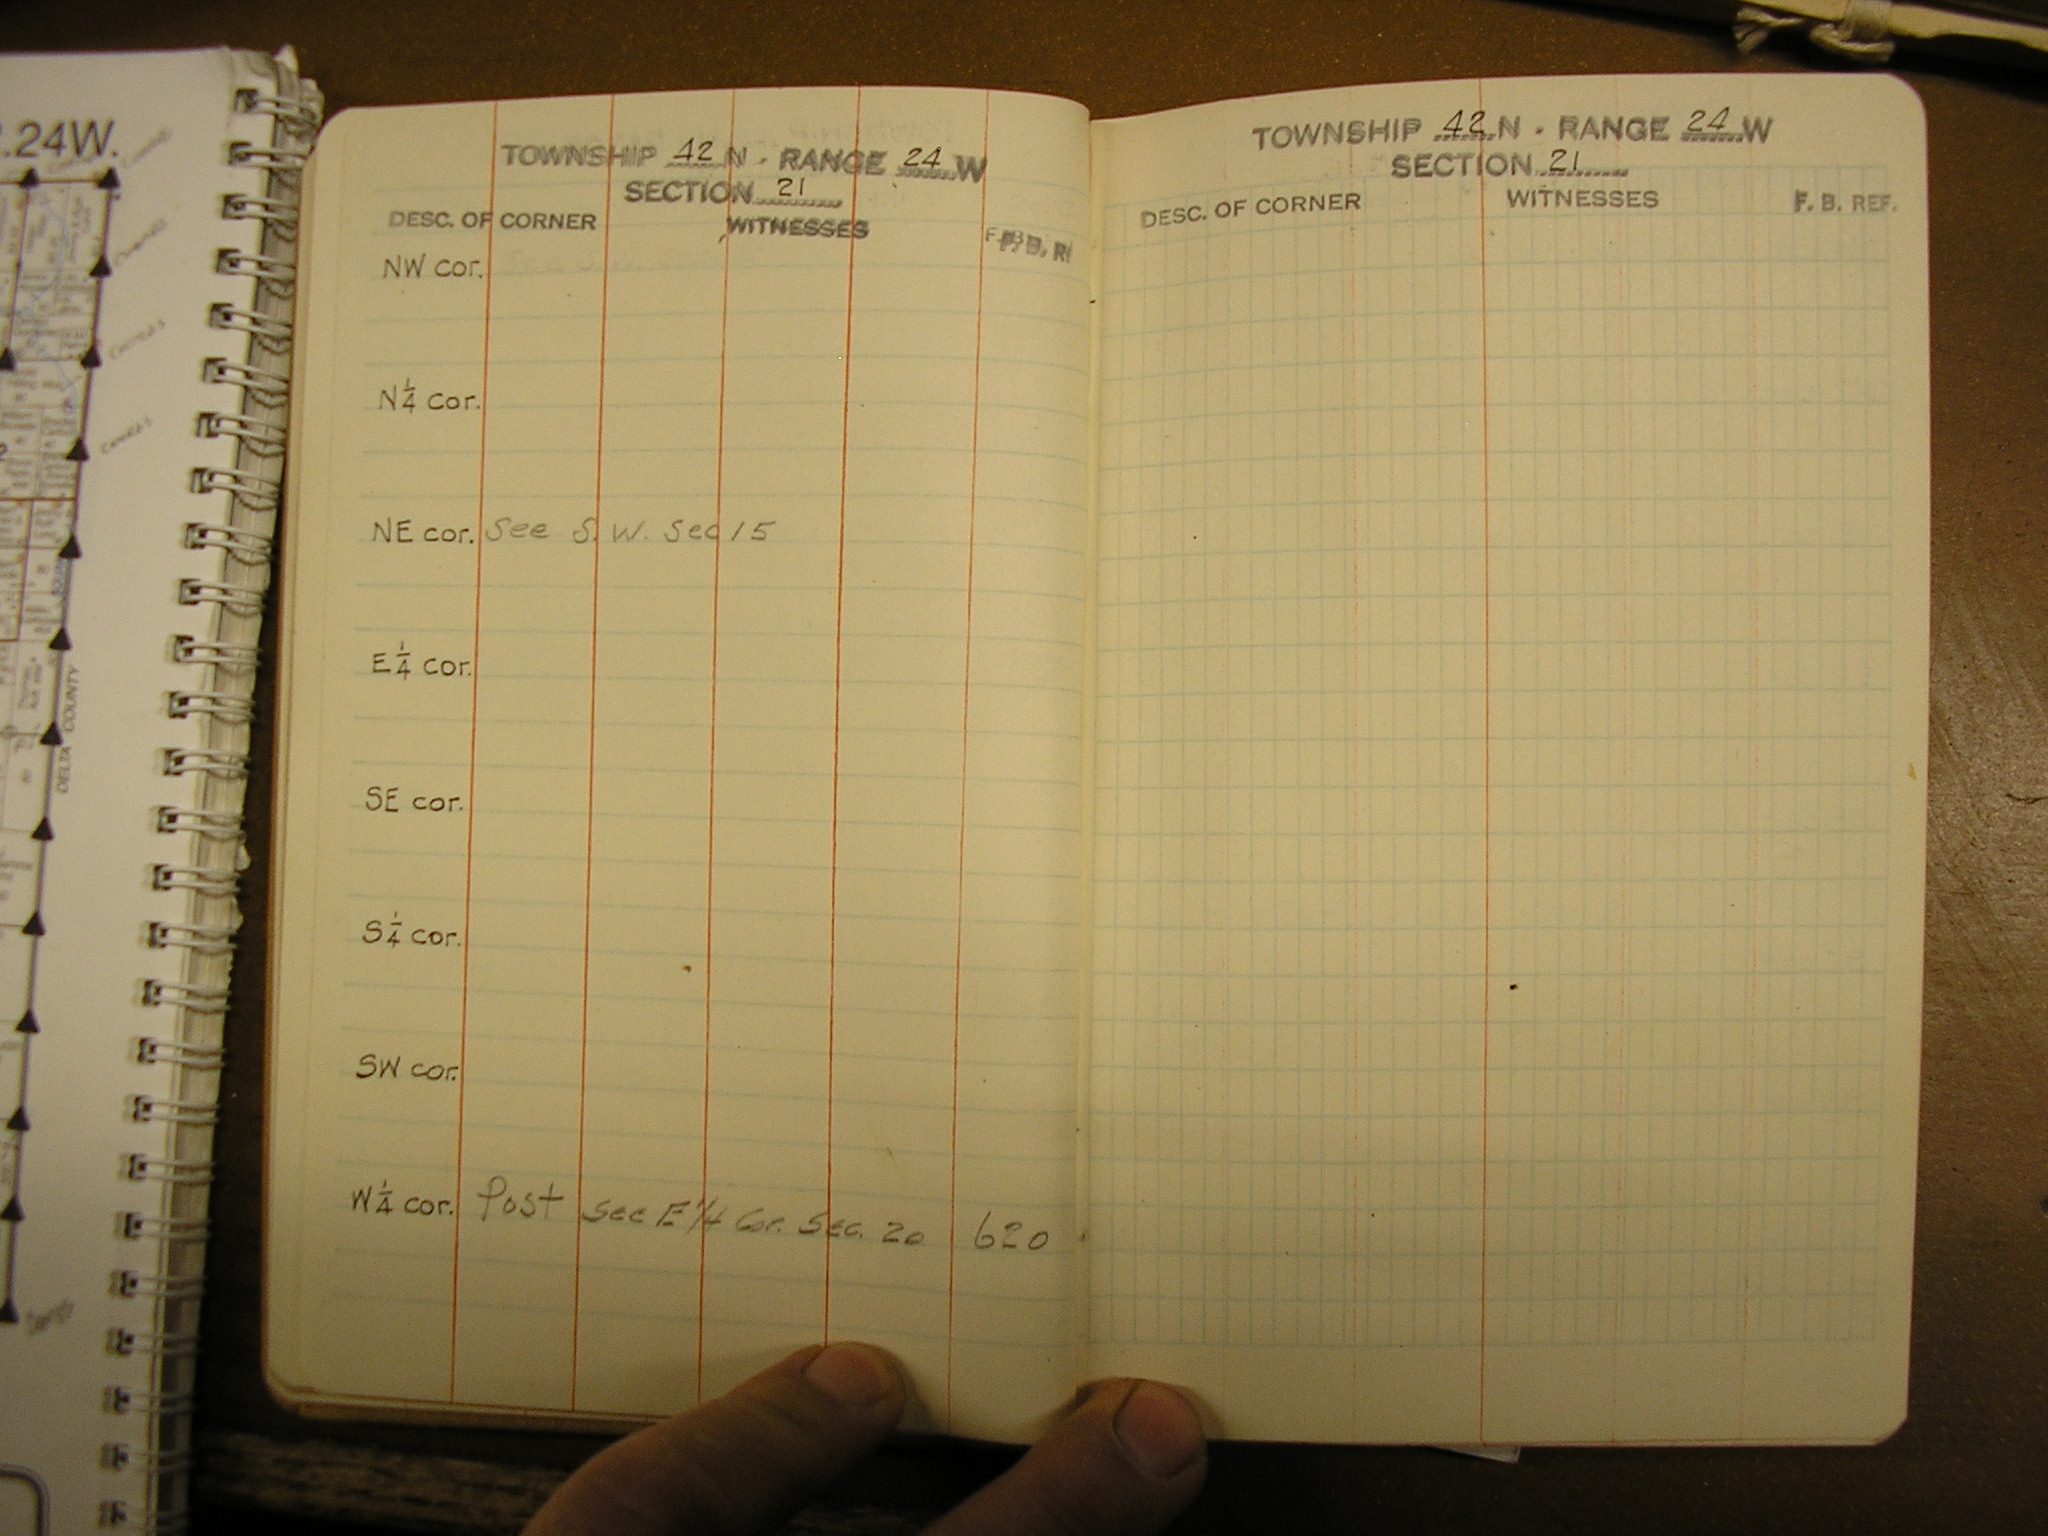 .24W.
DELTA COUNTY
TOWNSHIP 42 N - RANGE 24 W
SECTION 21
DESC. OF CORNER WITNESSES
NW cor.
N 1/4 cor.
NE cor. See S. W. Sec 15
E 1/4 cor.
SE cor.
S 1/4 cor.
SW cor.
W 1/4 cor. Post See E 1/4 Cor. Sec. 20 620
TOWNSHIP 42 N - RANGE 24 W
SECTION 21
DESC. OF CORNER WITNESSES F. B. REF.